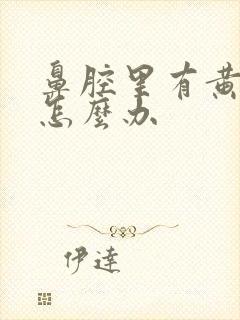 鼻腔里有黄
怎麼办
伊達